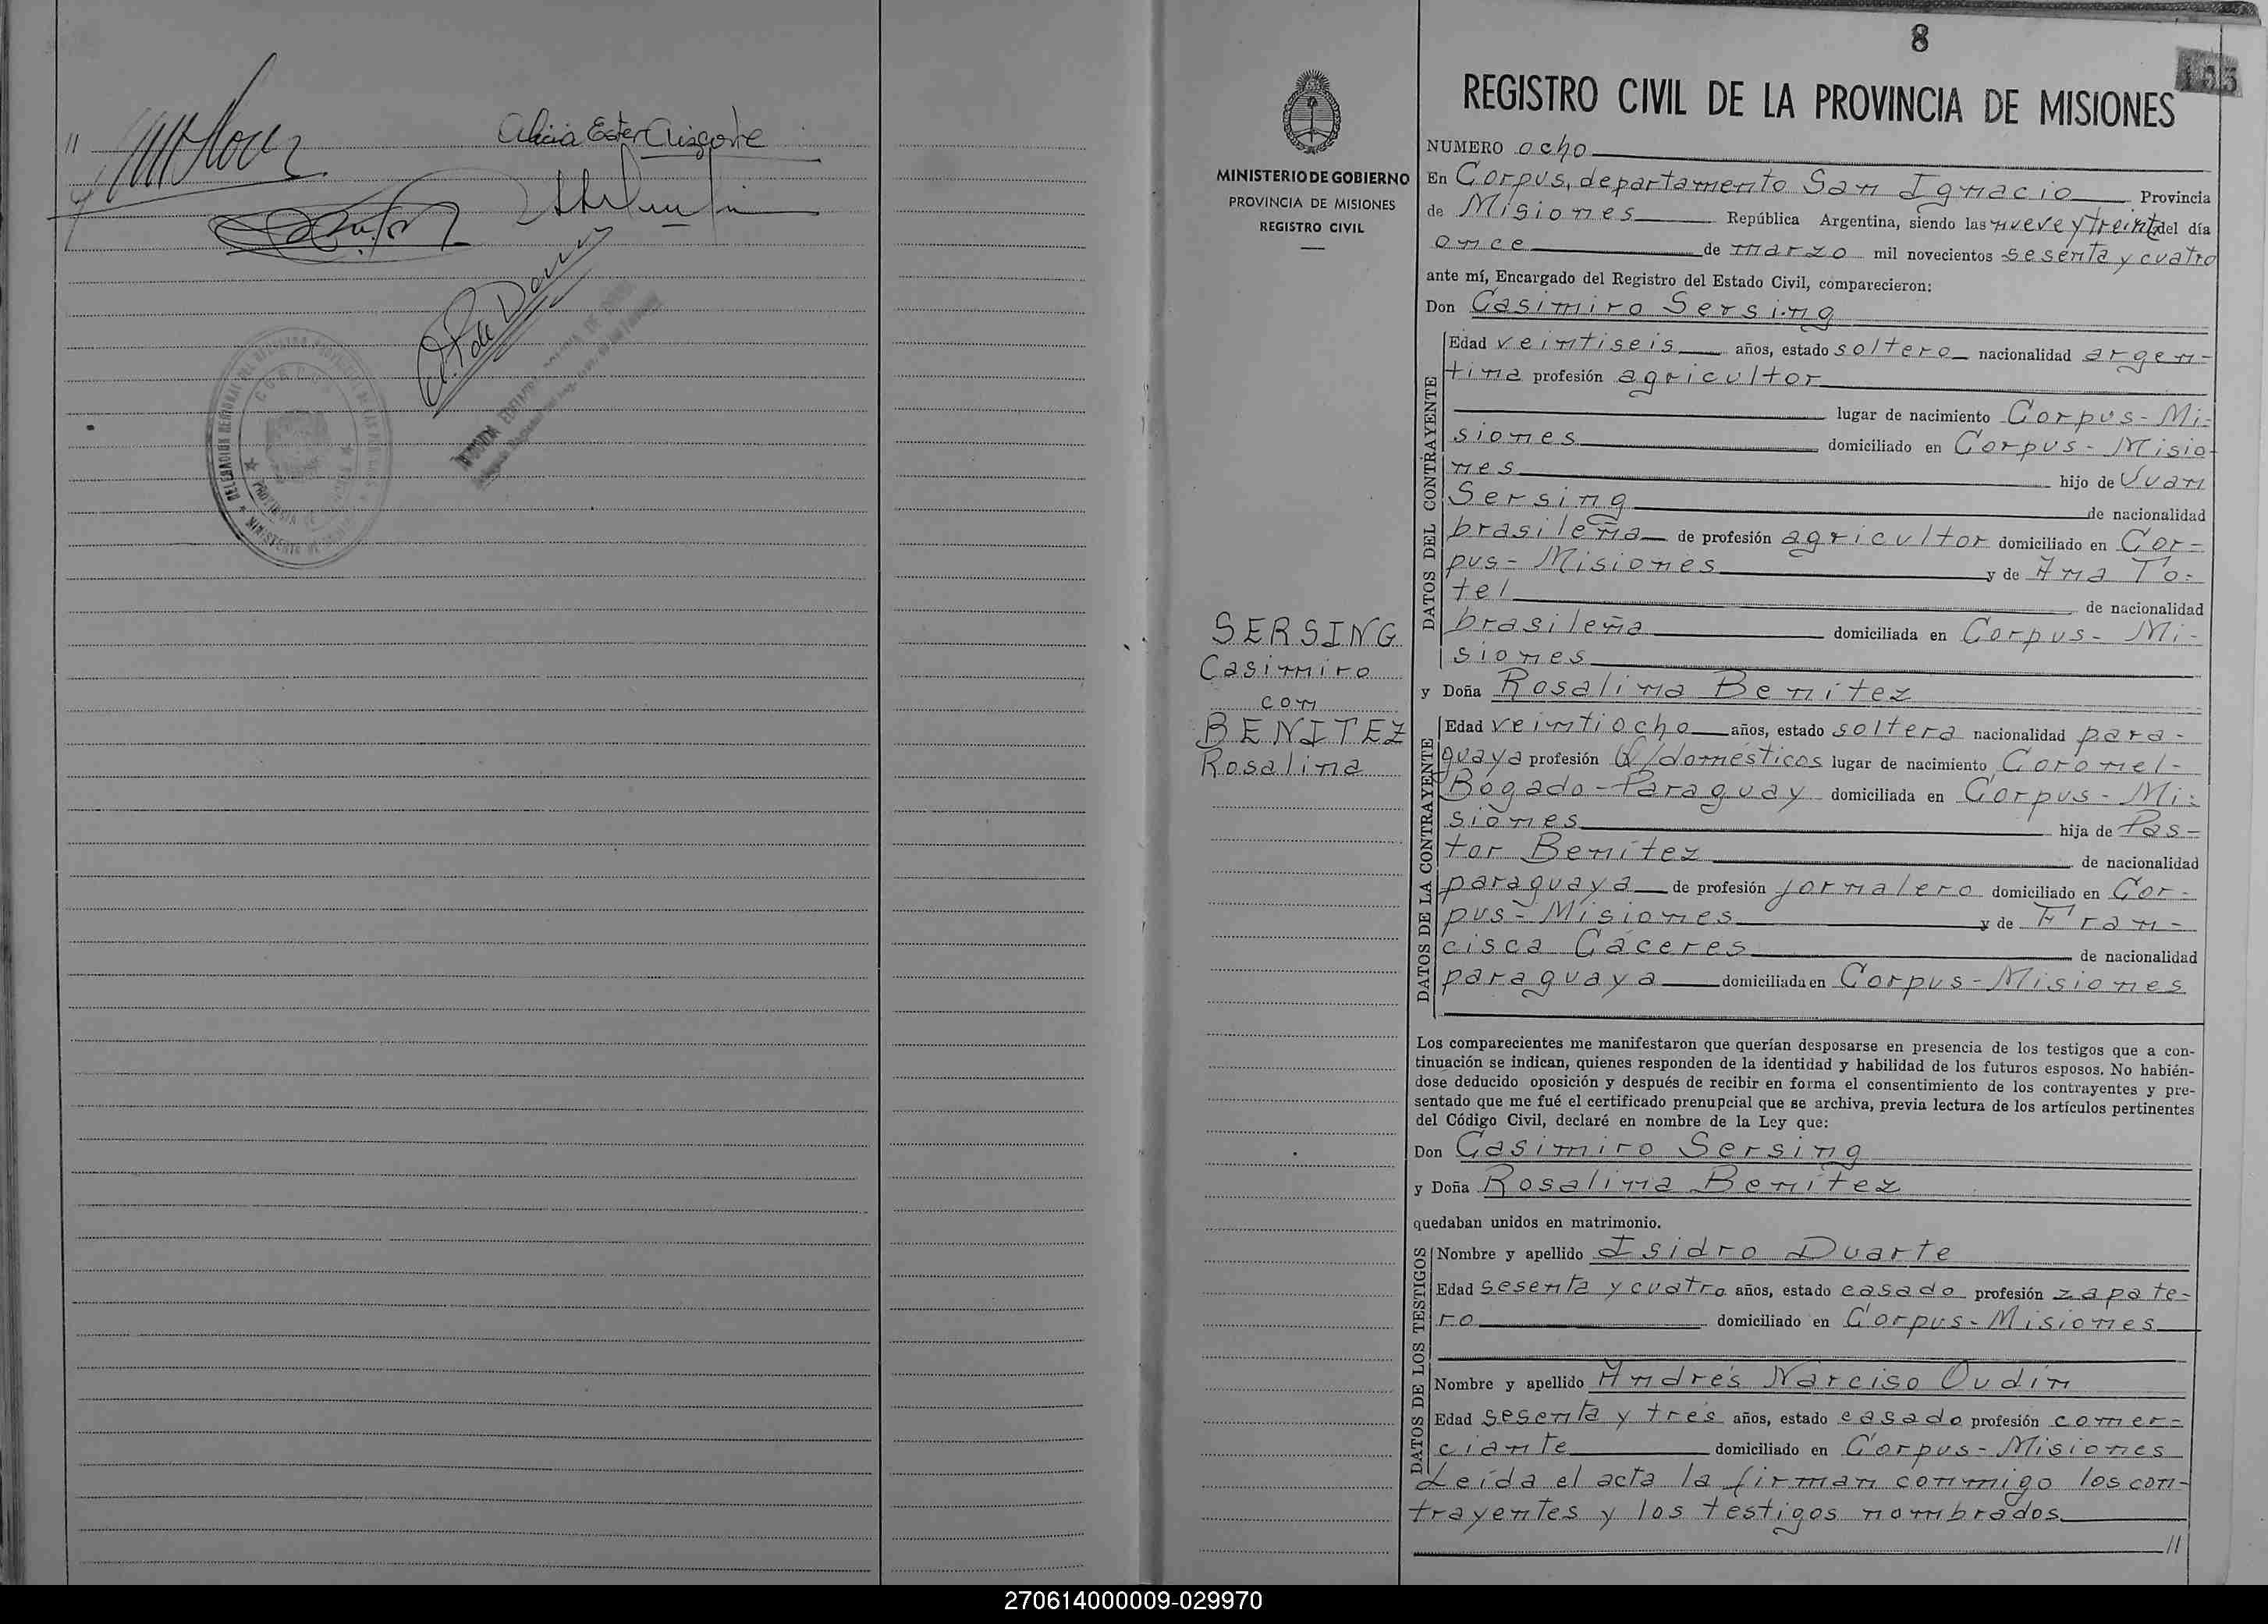 Alicia Ester
DELEGACION
8
REGISTRO CIVIL DE LA PROVINCIA DE MISIONES
MINISTERIO DE GOBIERNO
PROVINCIA DE MISIONES
REGISTRO CIVIL
NUMERO ocho
En Corpus, departamento San Ignacio Provincia
de Misiones República Argentina, siendo las nueve y treinta del día
once de marzo mil novecientos sesenta y cuatro
ante mí, Encargado del Registro del Estado Civil, comparecieron:
Don Casimiro Sersing
DATOS DEL CONTRAYENTE
Edad veintiseis años, estado soltero nacionalidad argen-
tina profesión agricultor
lugar de nacimiento Corpus - Mi-
siones domiciliado en Corpus - Misio-
nes hijo de Juan
Sersing de nacionalidad
brasileña de profesión agricultor domiciliado en Cor-
pus - Misiones y de Ana To-
tel de nacionalidad
brasileña domiciliada en Corpus - Mi-
siones
SERSING
Casimiro
con
BENITEZ
Rosalina
y Doña Rosalina Benítez
DATOS DE LA CONTRAYENTE
Edad veintiocho años, estado soltera nacionalidad para-
guaya profesión Q/domésticos lugar de nacimiento Coronel-
Bogado - Paraguay domiciliada en Corpus - Mi-
siones hija de Pas-
tor Benítez de nacionalidad
paraguaya de profesión jornalero domiciliado en Cor-
pus - Misiones y de Fran-
cisca Cáceres de nacionalidad
paraguaya domiciliada en Corpus - Misiones
Los comparecientes me manifestaron que querían desposarse en presencia de los testigos que a con-
tinuación se indican, quienes responden de la identidad y habilidad de los futuros esposos. No habién-
dose deducido oposición y después de recibir en forma el consentimiento de los contrayentes y pre-
sentado que me fué el certificado prenupcial que se archiva, previa lectura de los artículos pertinentes
del Código Civil, declaré en nombre de la Ley que:
Don Casimiro Sersing
y Doña Rosalina Benítez
quedaban unidos en matrimonio.
DATOS DE LOS TESTIGOS
Nombre y apellido Isidro Duarte
Edad sesenta y cuatro años, estado casado profesión zapate-
ro domiciliado en Corpus - Misiones
Nombre y apellido Andrés Narciso Oudin
Edad sesenta y tres años, estado casado profesión comer-
ciante domiciliado en Corpus - Misiones
Leída el acta la firman conmigo los con-
trayentes y los testigos nombrados
//
270614000009-029970